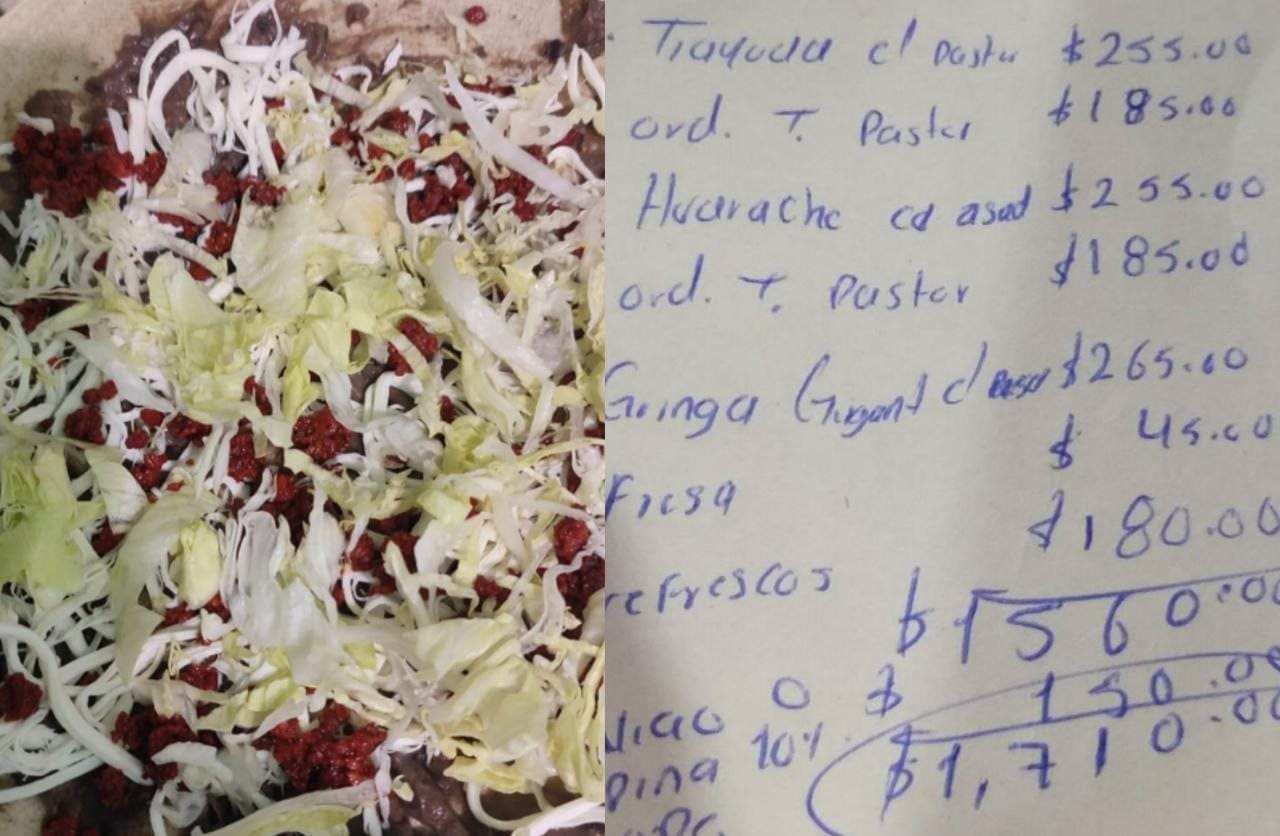 Tlayuda c/ Pastor $255.00
ord. T. Pastor $185.00
Huarache cd asad $255.00
ord. T. Pastor $185.00
Gringa Gigant c/ $265.00
Fresa $ 45.00
refrescos $180.00
$1560.00
0 $ 150.00
pina 10% $1,710.00